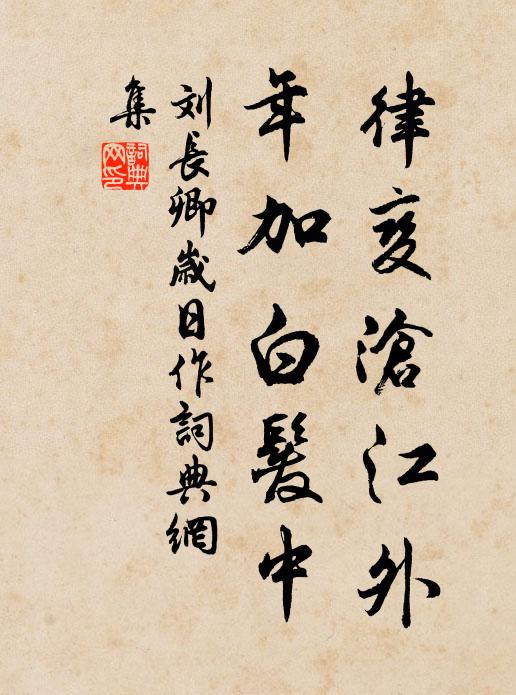 律变滄江外
年加白髮中
刘長卿歲日作詞典網
集
詞典
网印